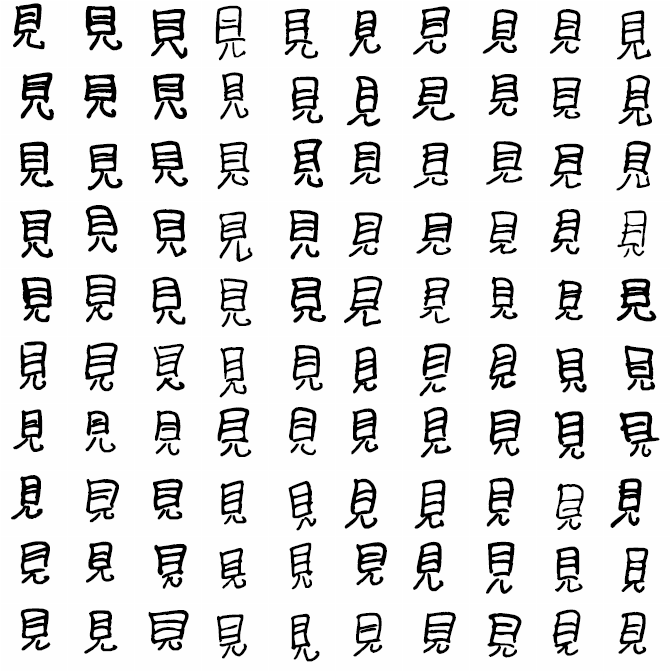 見見見見見見見見見見
見見見見見見見見見見
見見見見見見見見見見
見見見見見見見見見見
見見見見見見見見見見
見見見見見見見見見見
見見見見見見見見見見
見見見見見見見見見見
見見見見見見見見見見
見見見見見見見見見見